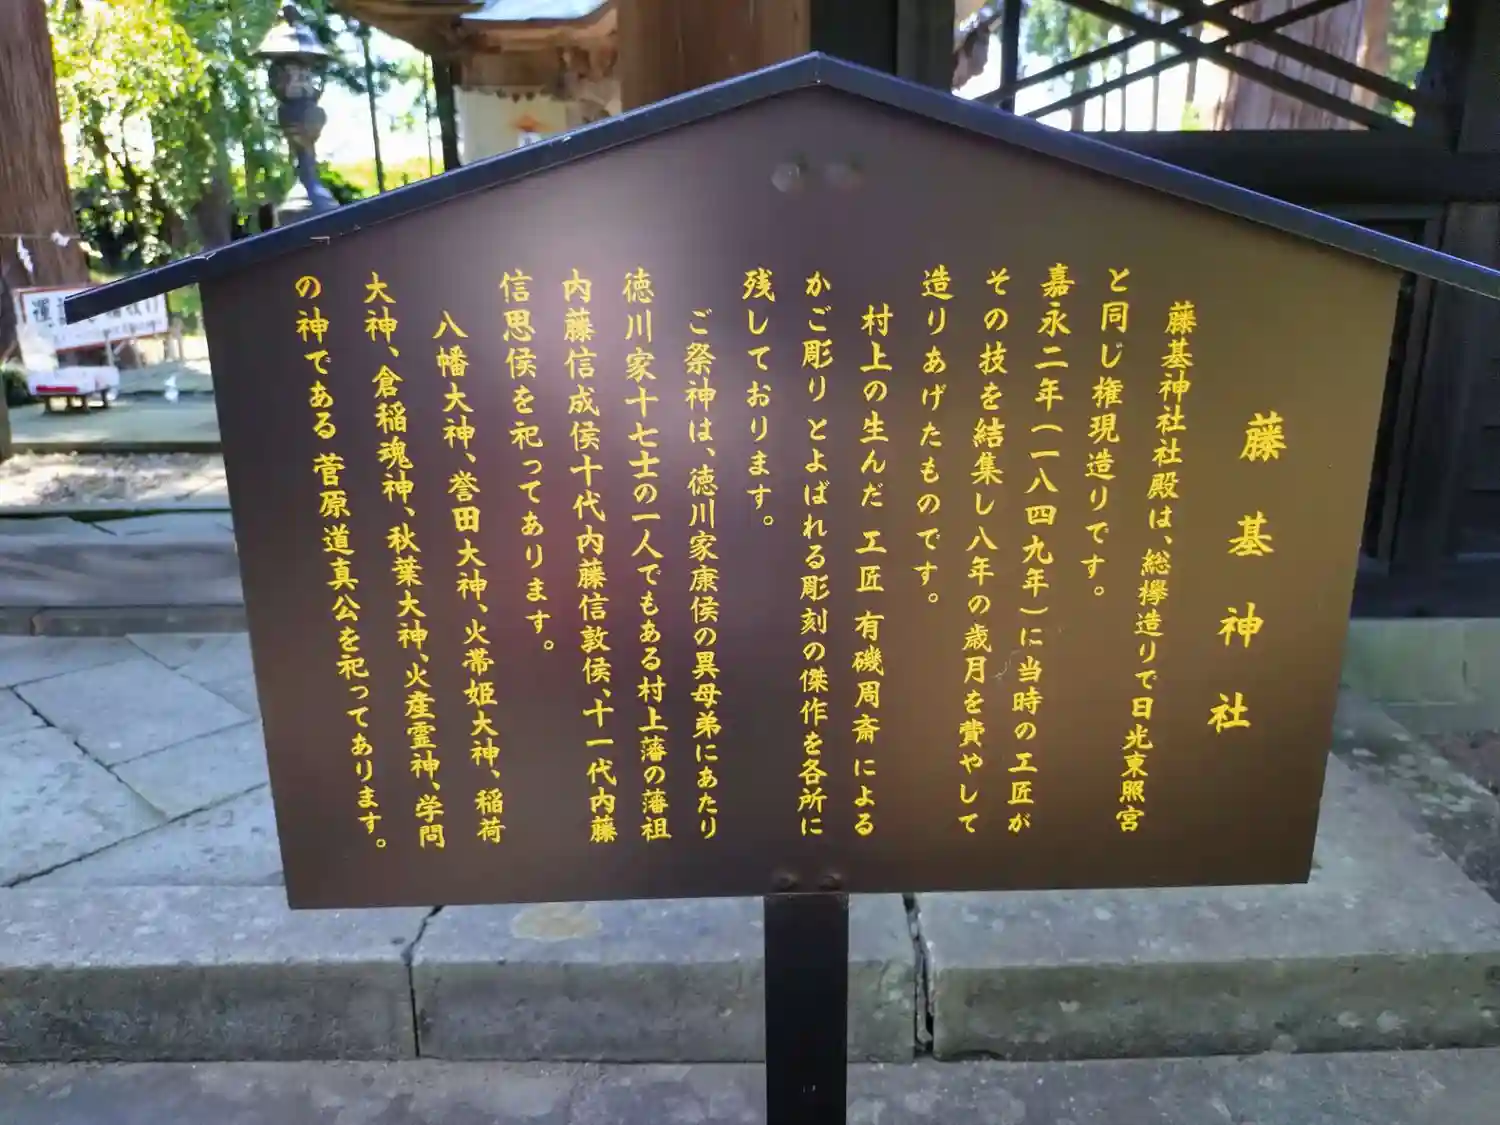 藤基神社
藤基神社社殿は、総欅造りで日光東照宮
と同じ権現造りです。
嘉永二年(一八四九年)に当時の工匠が
その技を結集し八年の歳月を費やして
造りあげたものです。
村上の生んだ工匠有磯周斎による
かご彫りとよばれる彫刻の傑作を各所に
残しております。
ご祭神は、徳川家康侯の異母弟にあたり
徳川家十七士の一人でもある村上藩の藩祖
内藤信成侯十代内藤信敦侯、十一代内藤
信思侯を祀ってあります。
八幡大神、誉田大神、火帯姫大神、稲荷
大神、倉稲魂神、秋葉大神、火産霊神、学問
の神である菅原道真公を祀ってあります。